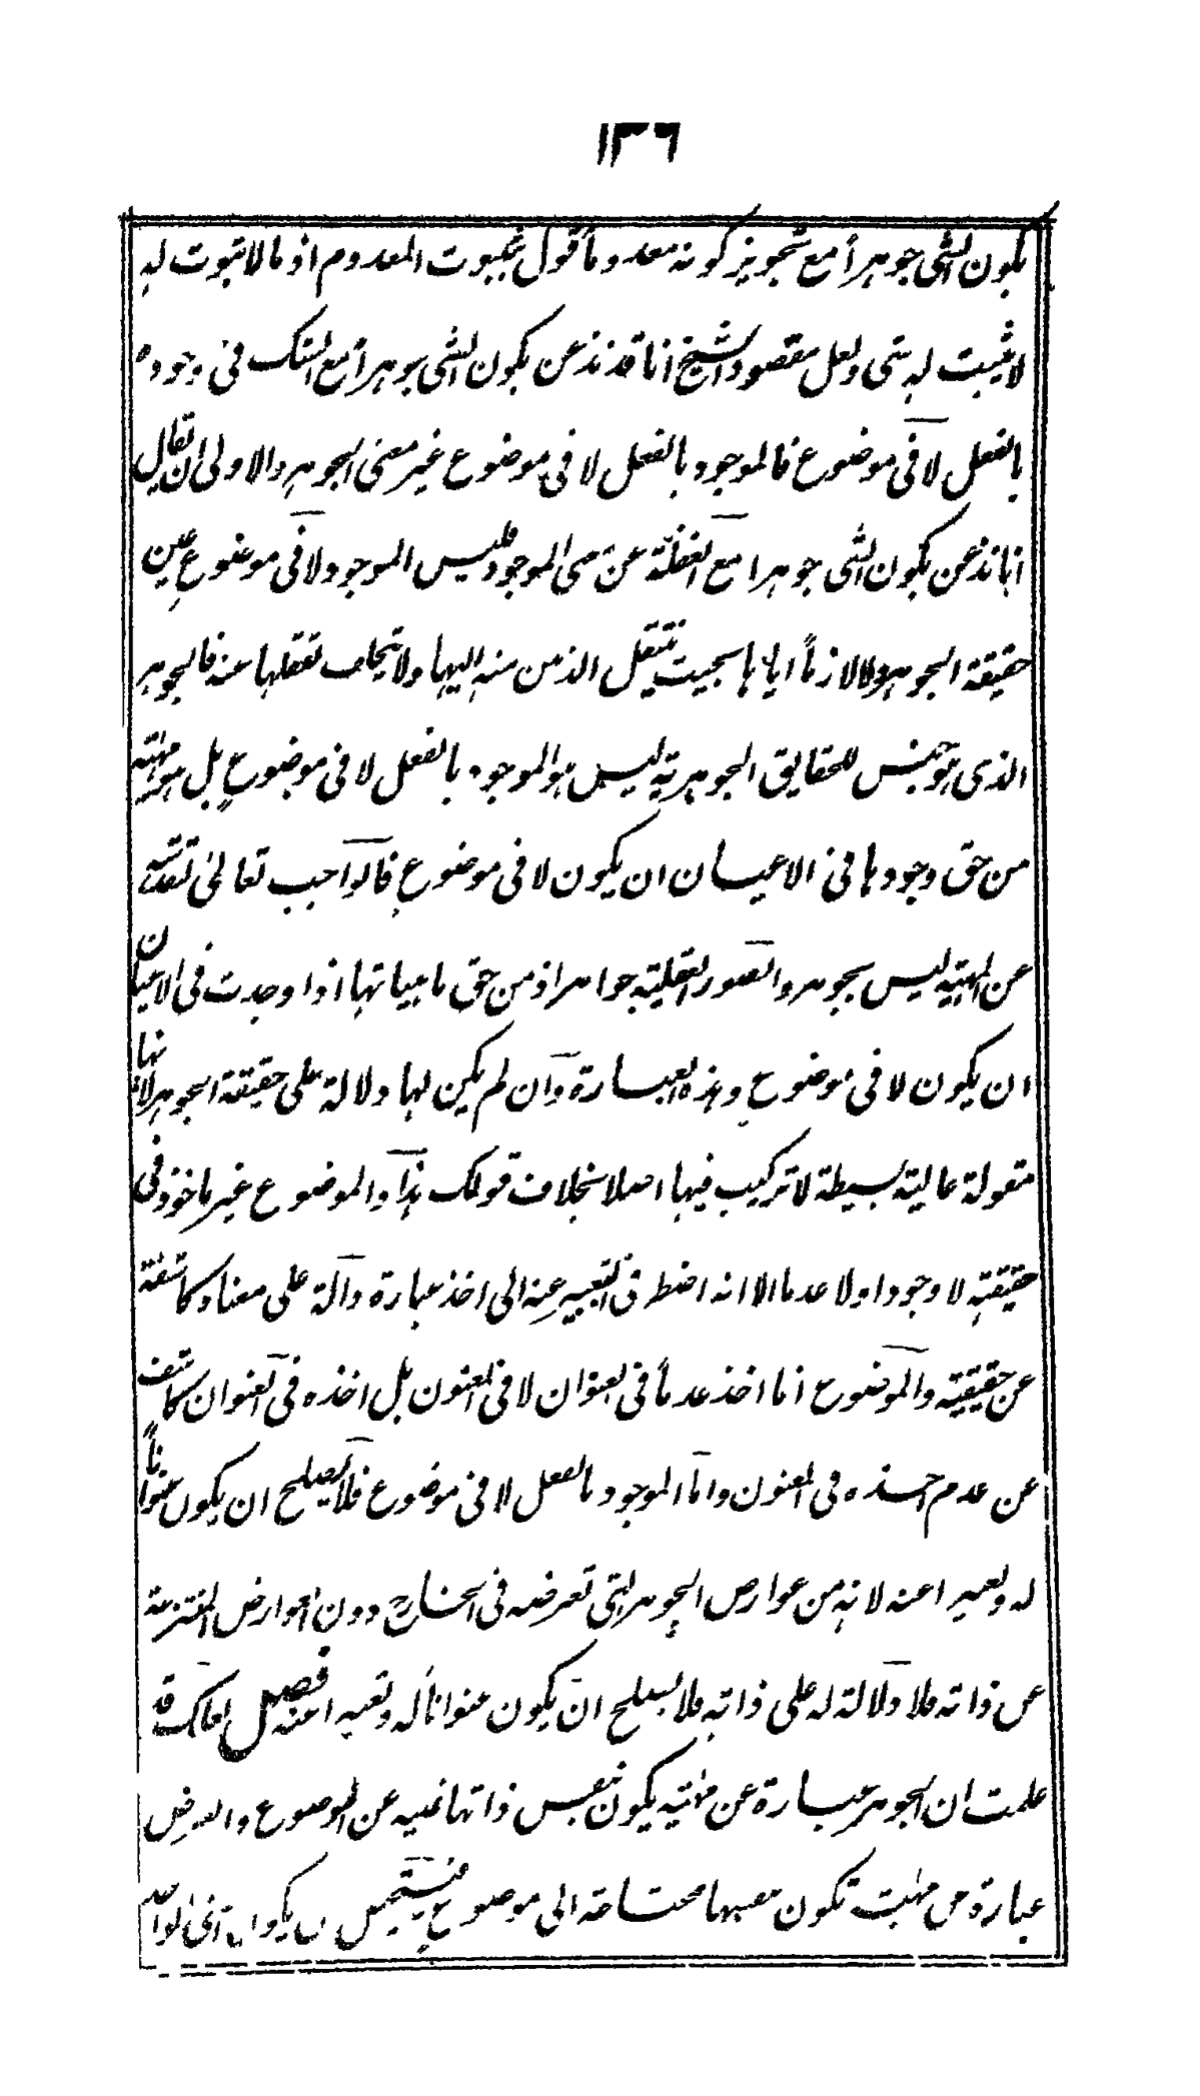 ١٣٦
بكون الشى جوهرأ مع تجويز كونه معدوماً قول بثبوت المعدوم اذ ما لا ثبوت له
لا يثبت له شى ولعل مقصود الشيخ انا قد نذعن بكون الشى جوهراً مع الشك فى وجوده
بالفعل لا فى موضوع فالموجود بالفعل لا فى موضوع غير معنى الجوهر والاولى ان يقال
انا نذعن بكون الشى جوهرا مع الغفلة عن معنى الموجود فليس الموجود لا فى موضوع عين
حقيقة الجوهر ولا لازماً اياها بحيث ينتقل الذهن منه اليها ولا يتخلف تعقلها عنه فالجوهر
الذى هو جنس للحقايق الجوهرية ليس هو الموجود بالفعل لا فى موضوع بل هو مهية
من حق وجودها فى الاعيان ان يكون لا فى موضوع فالواجب تعالى لتقدسه
عن المهية ليس بجوهر والصور العقلية جواهر اذ من حق ماهياتها اذا وجدت فى الاعيان
ان يكون لا فى موضوع وهذه العبارة وان لم يكن لها دلالة على حقيقة الجوهر لانها
مقولة عالية بسيطة لا تركيب فيها اصلا بخلاف قولك هذا والموضوع غير ماخوذ فى
حقيقته لا وجودا ولا عدما الا انه اضطر فى التعبير عنه الى اخذ عبارة دالة على معناه كاشفة
عن حقيقته والموضوع انما اخذ عدماً فى العنوان لا فى المعنون بل اخذه فى العنوان كاشف
عن عدم اخذه فى المعنون واما الموجود بالفعل لا فى موضوع فلا يصلح ان يكون عنواناً
له وتعبيرا عنه لانه من عوارض الجوهر التى تعرضه فى الخارج دون العوارض المنتزعة
عن ذاته فلا دلالة له على ذاته فلا يصلح ان يكون عنواناً له وتعبيرا عنه فصل لعلك قد
علمت ان الجوهر عبارة عن مهية يكون بنفس ذاتها غنية عن الموضوع والعرض
عبارة عن مهية تكون بنفسها محتاجة الى موضوع فيستحيل ان يكون الشى الواحد